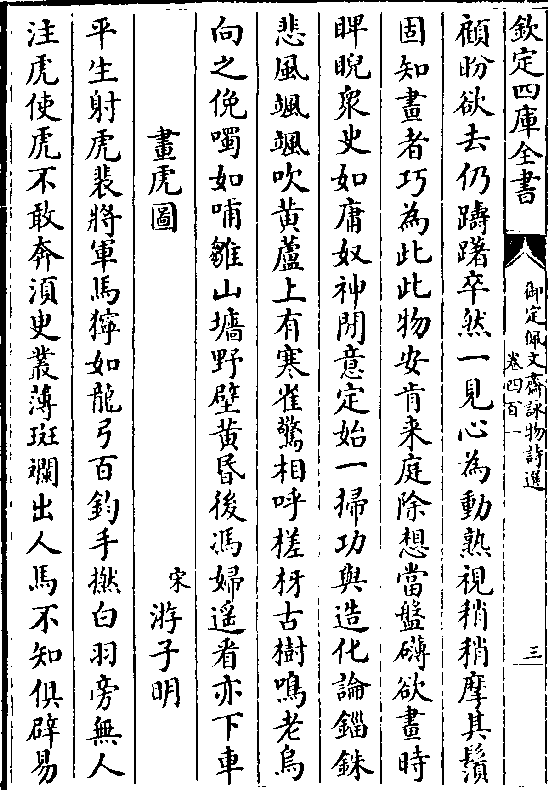 欽定四庫全書
御定佩文齋詠物詩選
卷四百一
三
顧盼欲去仍躊躇卒然一見心為動熟視稍稍摩其鬚
固知畫者巧為此此物安肯来庭除想當盤礴欲畫時
睥睨衆史如庸奴神閒意定始一掃功與造化論錙銖
悲風颯颯吹黄蘆上有寒雀驚相呼槎枒古樹鳴老烏
向之俛噣如哺雛山墻野壁黄昏後馮婦遥看亦下車
畫虎圖
宋 游子明
平生射虎裴將軍馬獰如龍弓百鈞手撚白羽旁無人
注虎使虎不敢奔湏臾叢薄斑斕出人馬不知俱辟易